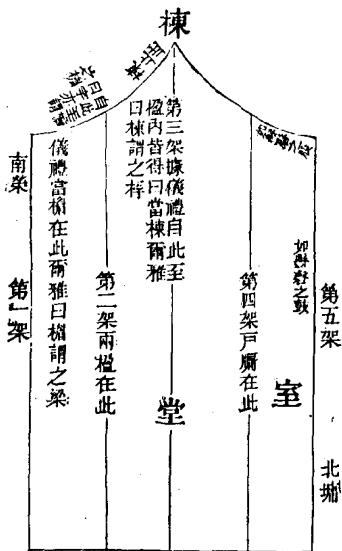 棟
第五架
北墉
室
第四架戶牖在此
堂
第三架據儀禮自此至
楹內皆得曰當棟爾雅
曰棟謂之桴
第二架兩楹在此
自此至
曰宇亦謂
儀禮當楣在此爾雅曰楣謂之梁
南榮
第一架